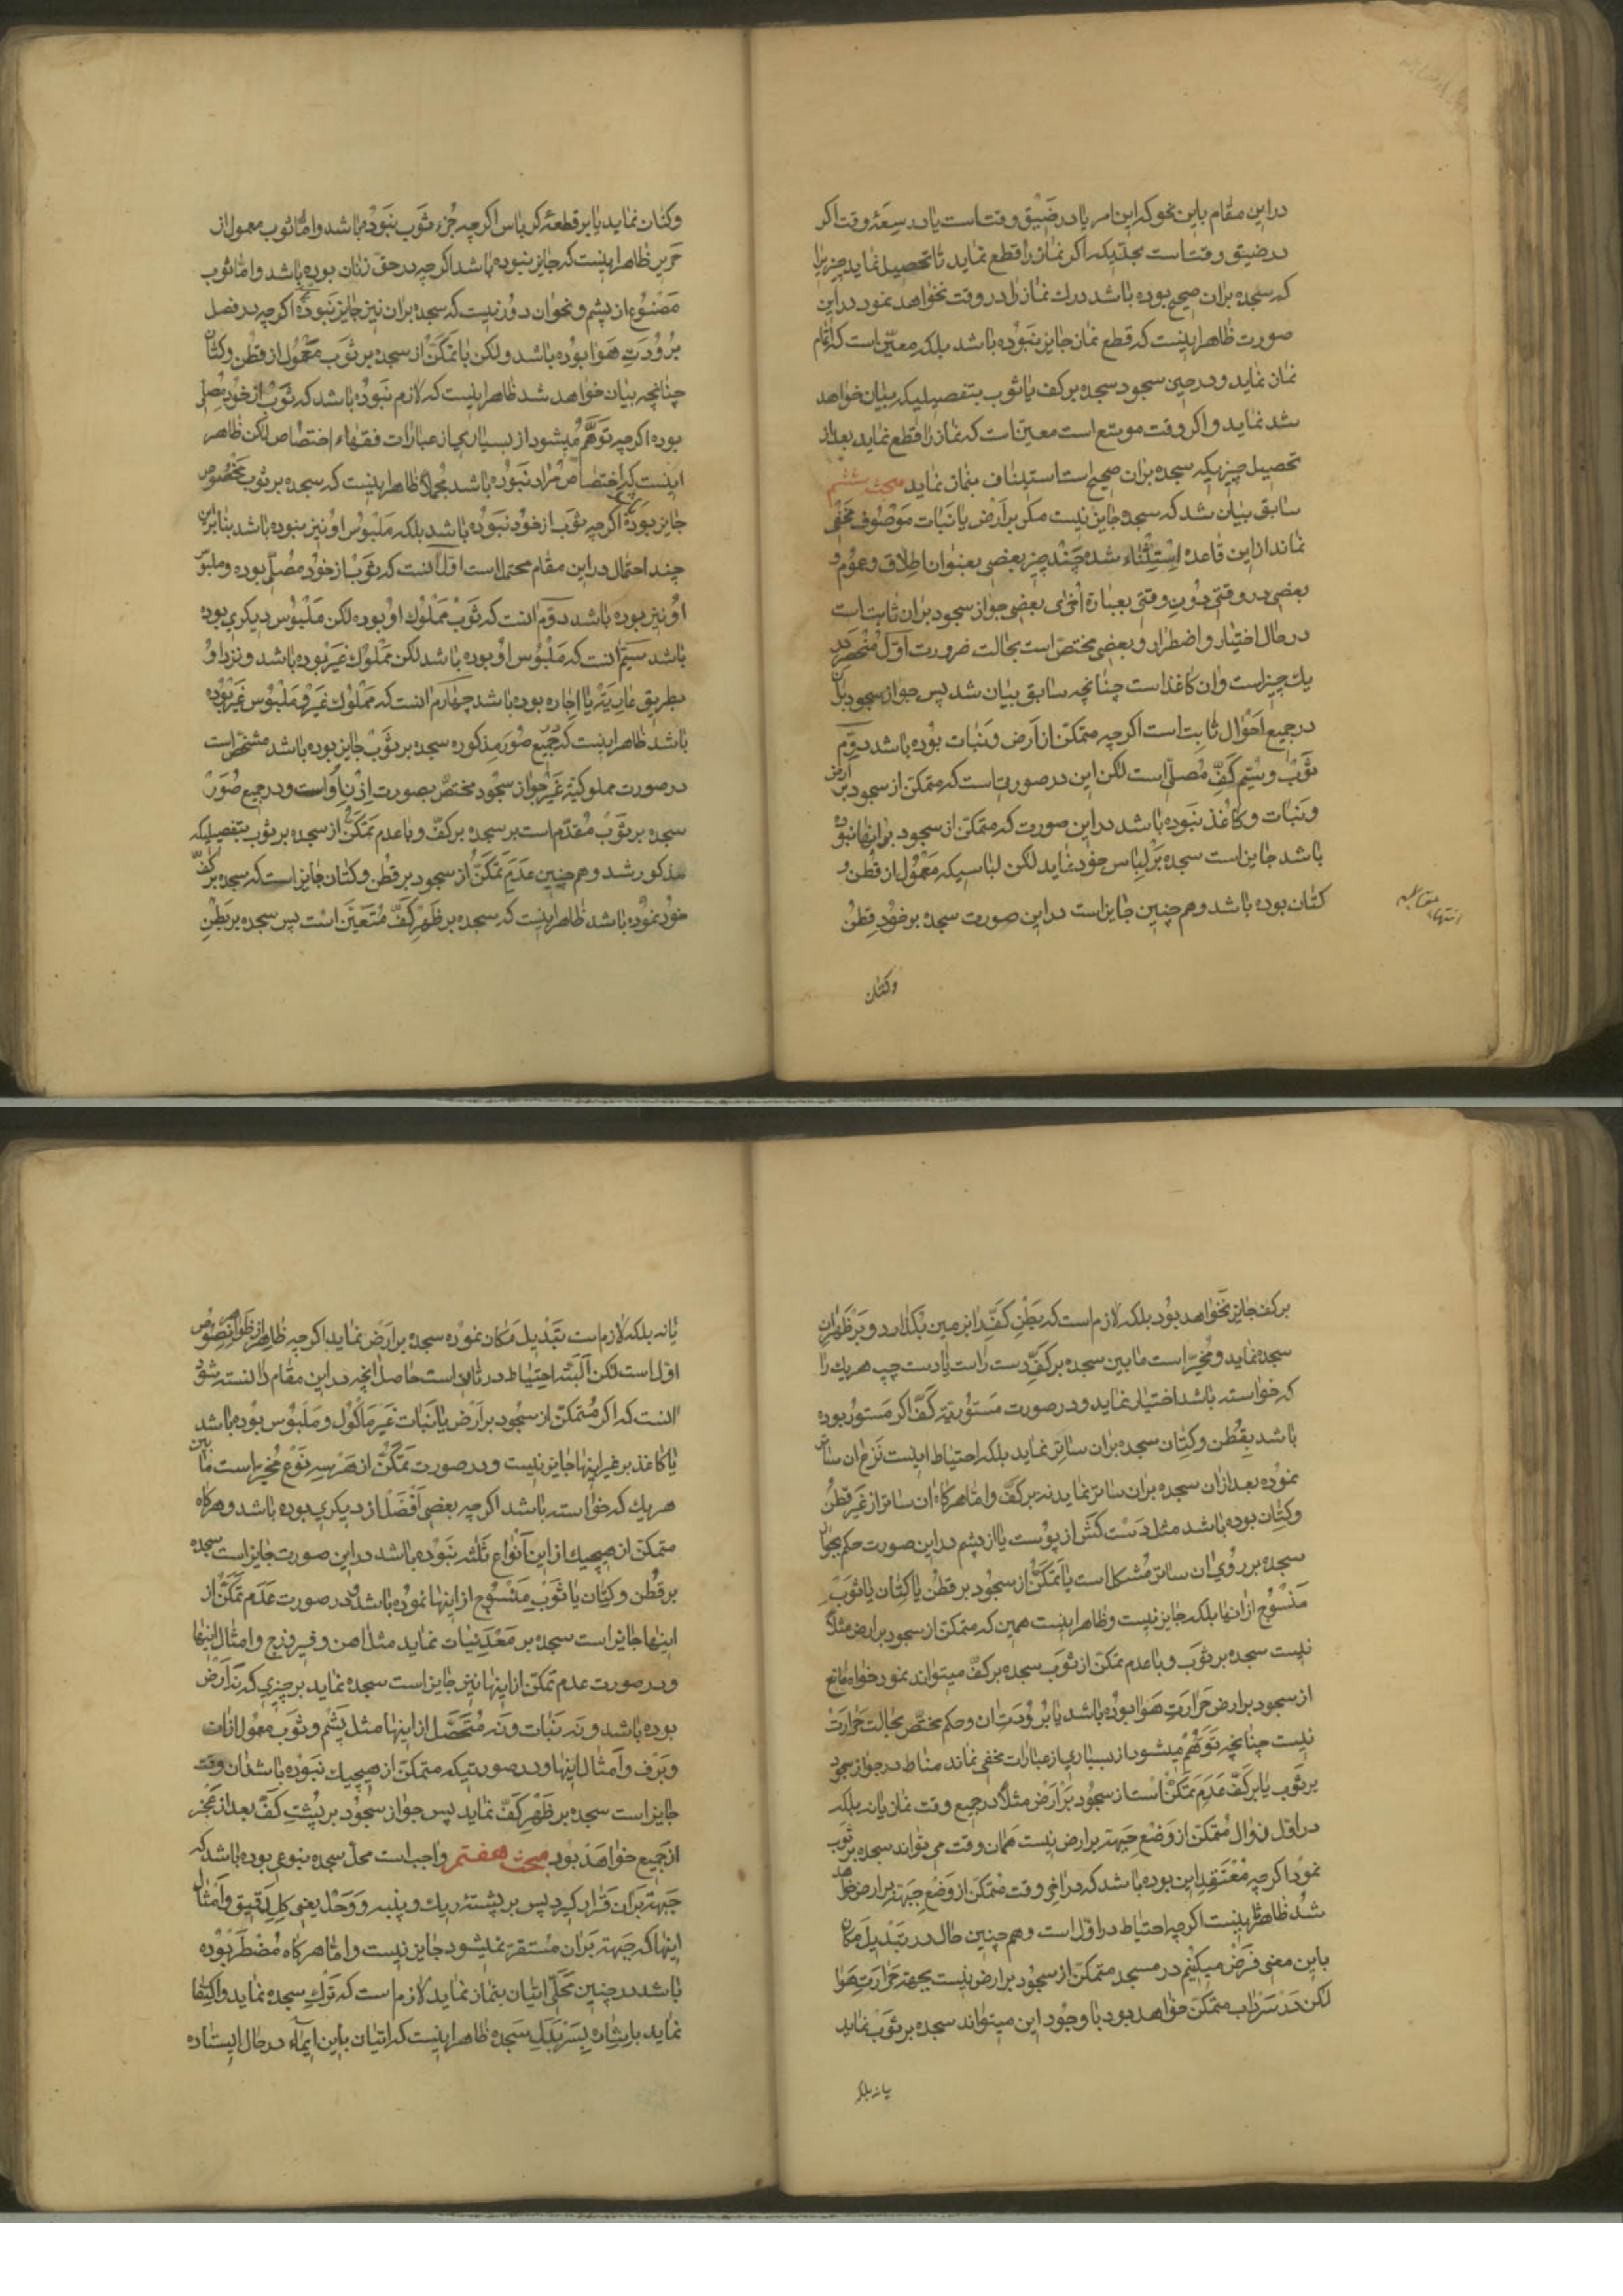 در این مقام باین نحو که این امر یا در ضیق وقت است یا در سعهٔ وقت اکر
در ضیق وقت است بحدیکه اکر نماز را قطع نماید تا تحصیل نماید چیزیرا
که سجده بران صحیح بوده باشد درك نماز را در وقت نخواهد نمود در این
صورت ظاهر اینست که قطع نماز جایز نبوده باشد بلکه معین است که اتمام
نماز نماید و در حین سجود سجده بر کف یا ثوب بتفصیلیکه بیان خواهد
شد نماید و اکر وقت موسع است معین است که نماز را قطع نماید بعد از
تحصیل چیزیکه سجده بران صحیح است استیناف بنماز نماید مبحث ششم
سابق بیان شد که سجود جایز نیست مکر بر ارض یا نبات موصوف مخفی
نماند از این قاعده استثناء شده چند چیز بعضی بعنوان اطلاق و عموم و
بعضی در وقتی دون وقتی بعبارة اخری بعضی جواز سجود بران ثابت است
در حال اختیار و اضطرار و بعضی مختص است بحالت ضرورت اول منحصر در
یك چیز است وان کاغذ است چنانچه سابق بیان شد پس جواز سجود بران
در جمیع احوال ثابت است اکر چه متمکن از ارض و نبات بوده باشد دوم
ثوب و سیم کف مصلی است لکن این در صورتی است که متمکن از سجود بر ارض
و نبات و کاغذ نبوده باشد در این صورت که متمکن از سجود بر اینها نبوده
باشد جایز است سجده بر لباس خود نماید لکن لباسیکه معمول از قطن و
کتان بوده باشد و هم چنین جایز است در این صورت سجده بر خود قطن
انتهاء مقابله
وکتان
وکتان نماید یا بر قطعهٔ کرباس اکر چه جزء ثوب نبوده باشد و اما ثوب معمول از
حریر ظاهر اینست که جایز نبوده باشد اکر چه در حق زنان بوده باشد و اما ثوب
مصنوع از پشم و نحو ان دور نیست که سجده بران نیز جایز نبوده اکر چه در فصل
برودت هوا بوده باشد ولکن با تمکن از سجده بر ثوب معمول از قطن و کتان
چنانچه بیان خواهد شد ظاهر اینست که لازم نبوده باشد که ثوب از خود مصلی
بوده اکر چه توهم میشود از بسیاری از عبارات فقهاء اختصاص لکن ظاهر
اینست که اختصاص مراد نبوده باشد مجملا ظاهر اینست که سجده بر ثوب مخصوص
جایز بوده اکر چه ثوب از خود نبوده باشد بلکه ملبوس او نیز نبوده باشد بنابراین
چند احتمال در این مقام محتمل است اول انست که ثوب از خود مصلی بوده و ملبوس
او نیز بوده باشد دوم انست که ثوب مملوك او بوده لکن ملبوس دیکری بوده
باشد سیم انست که ملبوس او بوده باشد لکن مملوك غیر بوده باشد و نزد او
بطریق عاریة یا اجاره بوده باشد چهارم انست که مملوك غیر و ملبوس غیر بوده
باشد ظاهر اینست که جمیع صور مذکوره سجده بر ثوب جایز بوده باشد مشخص است
در صورت مملوکیة غیر جواز سجود مختص بصورت اذن او است و در جمیع صور
سجده بر ثوب مقدم است بر سجده بر کف و با عدم تمکن از سجده بر ثوب بتفصیلیکه
مذکور شد و هم چنین عدم تمکن از سجود بر قطن و کتان جایز است که سجده بر کف
خود نموده باشد ظاهر اینست که سجده بر ظهر کف متعین است پس سجده بر بطن
بر کف جایز نخواهد بود بلکه لازم است که بطن کف را بر زمین بگذارد و بر ظهر ان
سجده نماید و مخیر است ما بین سجده بر کف دست راست یا دست چپ هر یك را
که خواسته باشد اختیار نماید و در صورت مستوریة کف اکر مستور بوده
باشد بقطن و کتان سجده بران ساتر نماید بلکه احتیاط اینست نزع ان ساتر
نموده بعد از ان سجده بران ساتر نماید نه بر کف و اما هر کاه ان ساتر از غیر قطن
و کتان بوده باشد مثل دست کش از پوست یا از پشم در این صورت حکم بجواز
سجده بر روی ان ساتر مشکل است با تمکن از سجود بر قطن یا کتان یا ثوب
منسوج از انها بلکه جایز نیست و ظاهر اینست همین که متمکن از سجود بر ارض مثلا
نیست سجده بر ثوب و با عدم تمکن از ثوب سجده بر کف میتواند نمود خواه مانع
از سجود بر ارض حرارت هوا بوده باشد یا برودت ان و حکم مختص بحالت حرارت
نیست چنانچه توهم میشود از بسیاری از عبارات مخفی نماند مناط در جواز سجود
بر ثوب یا بر کف عدم تمکن است از سجود بر ارض مثلا در جمیع وقت نماز یا نه بلکه
در اول زوال متمکن از وضع جبهه بر ارض نیست همان وقت می تواند سجده بر ثوب
نمود اکر چه معتقد این بوده باشد که در اخر وقت متمکن از وضع جبهه بر ارض خواهد
شد ظاهر اینست اکر چه احتیاط در اول است و هم چنین حال در تبدیل مکان
باین معنی فرض میکنیم در مسجد متمکن از سجود بر ارض نیست بجهة حرارت هوا
لکن در سرداب متمکن خواهد بود با وجود این میتواند سجده بر ثوب نماید
یا نه بلکه
یا نه بلکه لازم است تبدیل مکان نموده سجده بر ارض نماید اکر چه ظاهر از ظواهر نصوص
اول است لکن البته احتیاط در ثانی است حاصل انچه در این مقام دانسته شد
انست که اکر متمکن از سجود بر ارض یا نبات غیر ماکول و ملبوس بوده باشد
یا کاغذ بر غیر اینها جایز نیست و در صورت تمکن از هر سه نوع مخیر است ما بین
هر یك که خواسته باشد اکر چه بعضی افضل از دیکری بوده باشد و هر کاه
متمکن از هیچیك از این انواع ثلثه نبوده باشد در این صورت جایز است سجده
بر قطن و کتان یا ثوب منسوج از اینها نموده باشد و در صورت عدم تمکن از
اینها جایز است سجده بر معدنیات نماید مثل اهن و فیروزج و امثال اینها
و در صورت عدم تمکن از اینها نیز جایز است سجده نماید بر چیزی که نه ارض
بوده باشد و نه نبات و نه متحصل از اینها مثل پشم و ثوب معمول از ان
و برف و امثال اینها و در صورتیکه متمکن از هیچیك نبوده باشد ان وقت
جایز است سجده بر ظهر کف نماید پس جواز سجود بر پشت کف بعد از عجز
از جمیع خواهد بود مبحث هفتم واجب است محل سجده بنوعی بوده باشد که
جبهه بران قرار کیرد پس بر پشتهٔ ریك و پنبه و وحل یعنی کل رقیق و امثال
اینها که جبهه بران مستقر نمیشود جایز نیست و اما هر کاه مضطر بوده
باشد در چنین محلی اتیان بنماز نماید لازم است که ترك سجده نماید و اکتفا
نماید باشاره بسر بدل سجده ظاهر اینست که اتیان باین ایماء در حال ایستاده